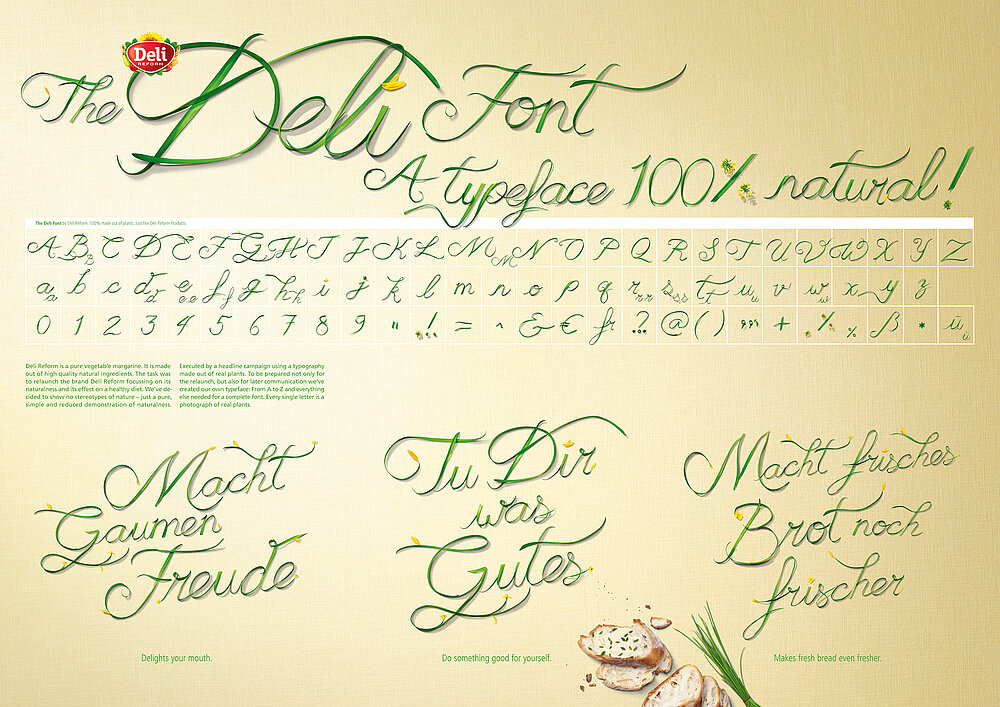 Deli
REFORM
The Deli Font
A typeface 100% natural!
The Deli Font by Deli Reform. 100% made out of plants, just like Deli Reform Products.
A B B C D E F G H I J K L M M N O P Q R S T U V W X Y Z
a a b c d d e e e f f g h h i j k l m n o p q r r r s s s t t u u v w w x y z
0 1 2 3 4 5 6 7 8 9 " ! = ^ & € fr ? @ ( ) + % % ß * ü ü
Deli Reform is a pure vegetable margarine. It is made
out of high quality natural ingredients. The task was
to relaunch the brand Deli Reform focussing on its
naturalness and its effect on a healthy diet. We've de-
cided to show no stereotypes of nature – just a pure,
simple and reduced demonstration of naturalness.
Executed by a headline campaign using a typography
made out of real plants. To be prepared not only for
the relaunch, but also for later communication we've
created our own typeface: From A to Z and everything
else needed for a complete font. Every single letter is a
photograph of real plants.
Macht
Gaumen
Freude
Delights your mouth.
Tu Dir
was
Gutes.
Do something good for yourself.
Macht frisches
Brot noch
frischer
Makes fresh bread even fresher.